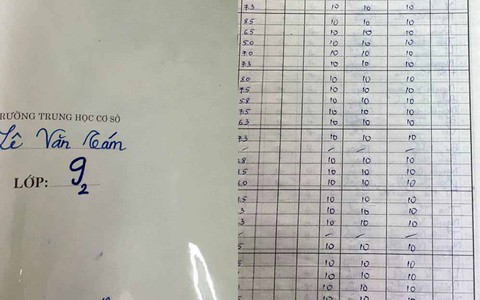 RƯỜNG TRUNG HỌC CƠ SỞ
Lê Văn Tám
LỚP: 9 2
7.3 10 10 10
8.5 10 10 10
6.5 10 10 10
5.0 10 10 10
7.0 10 10 10
7.3 10 10 10
8.0 10 10 10
9.5 10 10 10
5.8 10 10 10
7.5 10 10 10
6.3 10 10 10
7.3 10 10 10
.8 10 10 10
.5 10 10 10
.0 10 10 10
.5 10 10 10
3 10 10 10
3 10 10 10
5 10 10 10
5 10 10 10
10 10 10
10 10 10
10 10 10